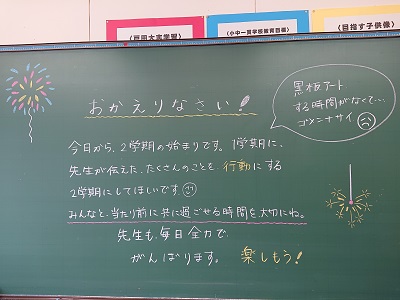 〈戸田大志学習〉
〈小中一貫学校教育目標〉
〈目指す子供像〉
おかえりなさい!
黒板アート
する時間がなくて…
ゴメンナサイ
今日から、2学期の始まりです。1学期に、
先生が伝えた、たくさんのことを、行動にする
2学期にしてほしいです
みんなと、当たり前に共に過ごせる時間を大切にね。
先生も、毎日全力で、
がんばります。 楽しもう!